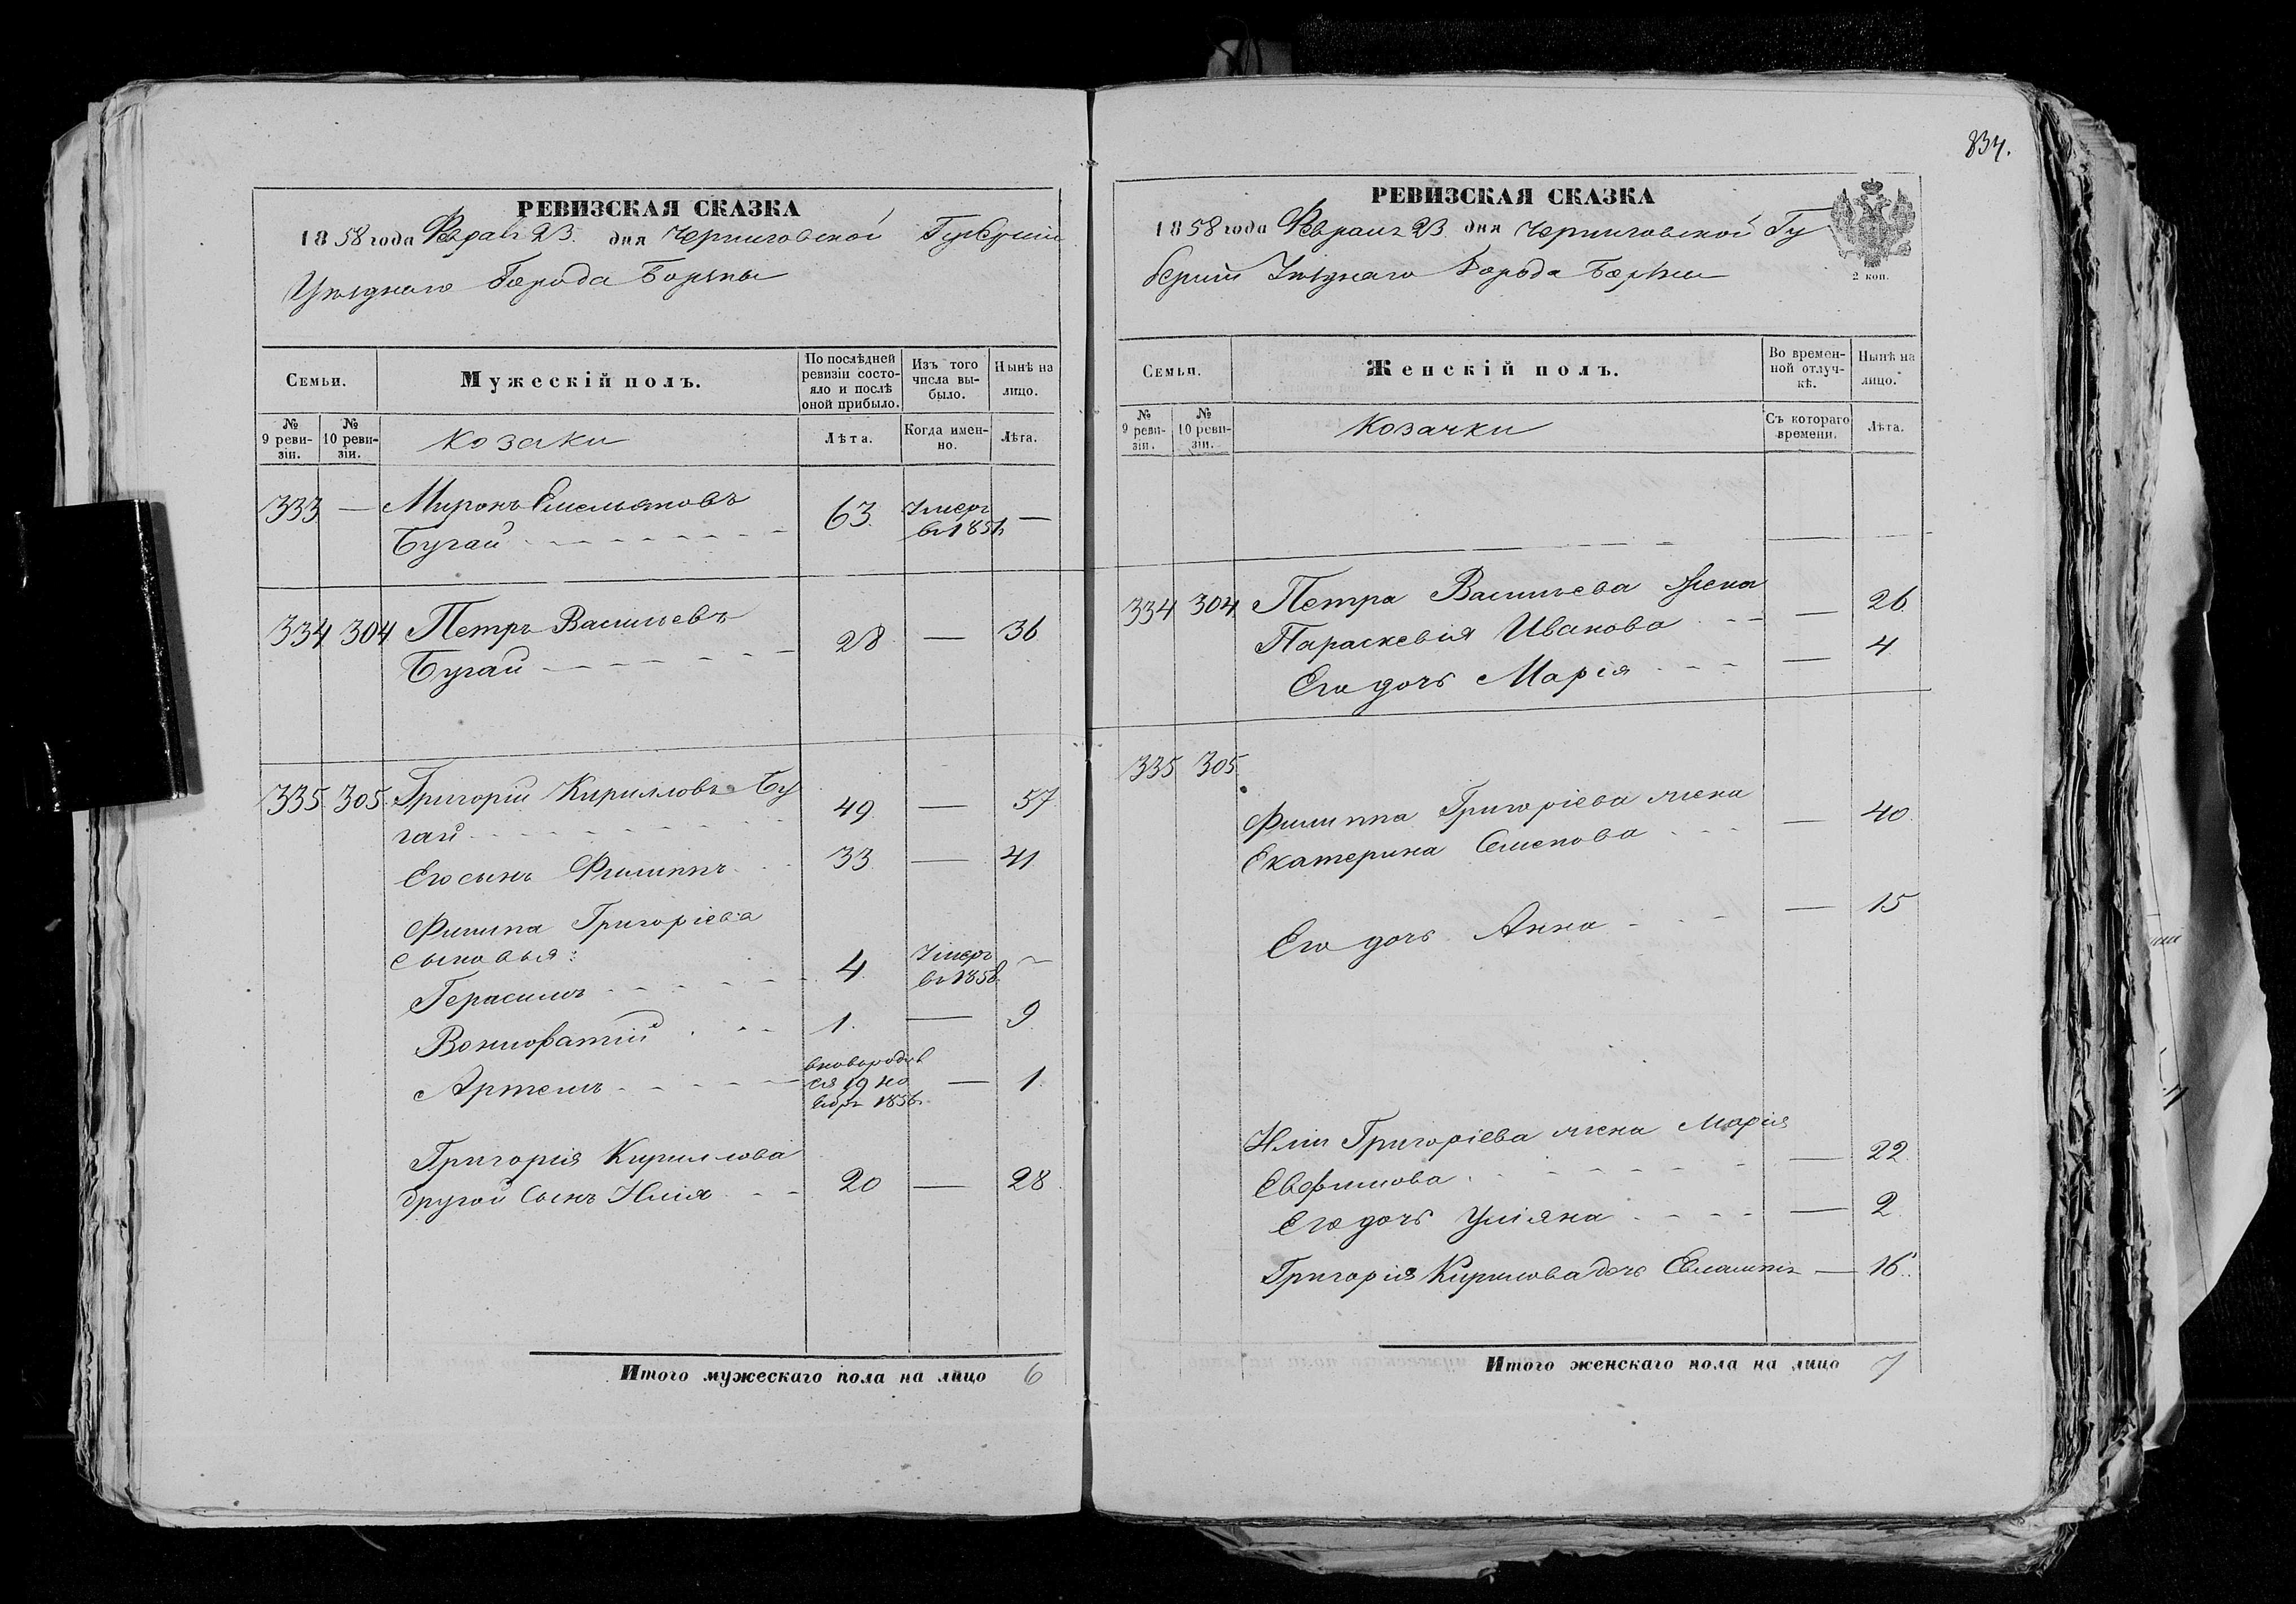 РЕВИЗСКАЯ СКАЗКА
1858 года Февраля 23. дня Черниговской Губернии
Уѣзднаго Города Борзны
Семьи.
Мужескій полъ.
По послѣдней ревизіи состо-
яло и послѣ
оной прибыло.
Изъ того
числа вы-
было.
Нынѣ на
лицо.
№
9 реви-
зіи.
№
10 реви-
зіи.
Козаки
Лѣта.
Когда имен-
но.
Лѣта.
333 — Миронъ Емельяновъ
Бугай 63. Умеръ
въ 185 —
334 304 Петръ Васильевъ
Бугай 28 — 36
335 305. Григорій Кирилловъ Бу
гай 49. — 57
Его сынъ Филиппъ 33. — 41
Филипа Григоріева
сыновья:
Герасимъ 4. Умеръ
въ 1858
Вонифатій 1. — 9.
Артемъ вновородив
ся 19 но
ября 1856 — 1.
Григорія Кирилова
другой Сынъ Илія 20 — 28.
Итого мужескаго пола на лицо 6
834.
РЕВИЗСКАЯ СКАЗКА
1858 года Февраля 23. дня Черниговской Гу
берніи Уѣзднаго Города Борзны
2 коп.
Семьи.
Женскій полъ.
Во времен-
ной отлуч-
кѣ.
Нынѣ на
лицо.
№
9 реви-
зіи.
№
10 реви-
зіи.
Козачки
Съ котораго
времени.
Лѣта.
334 304. Петра Васильева Жена
Параскевія Иванова — 26
Его дочь Марія — 4
335 305.
Филиппа Григоріева жена
Екатерина Семенова — 40.
Его дочь Анна — 15
Иліи Григоріева жена Марія
Евфимова — 22.
Его дочь Уліяна — 2
Григорія Кирилова дочь — 16.
Итого женскаго пола на лицо 7